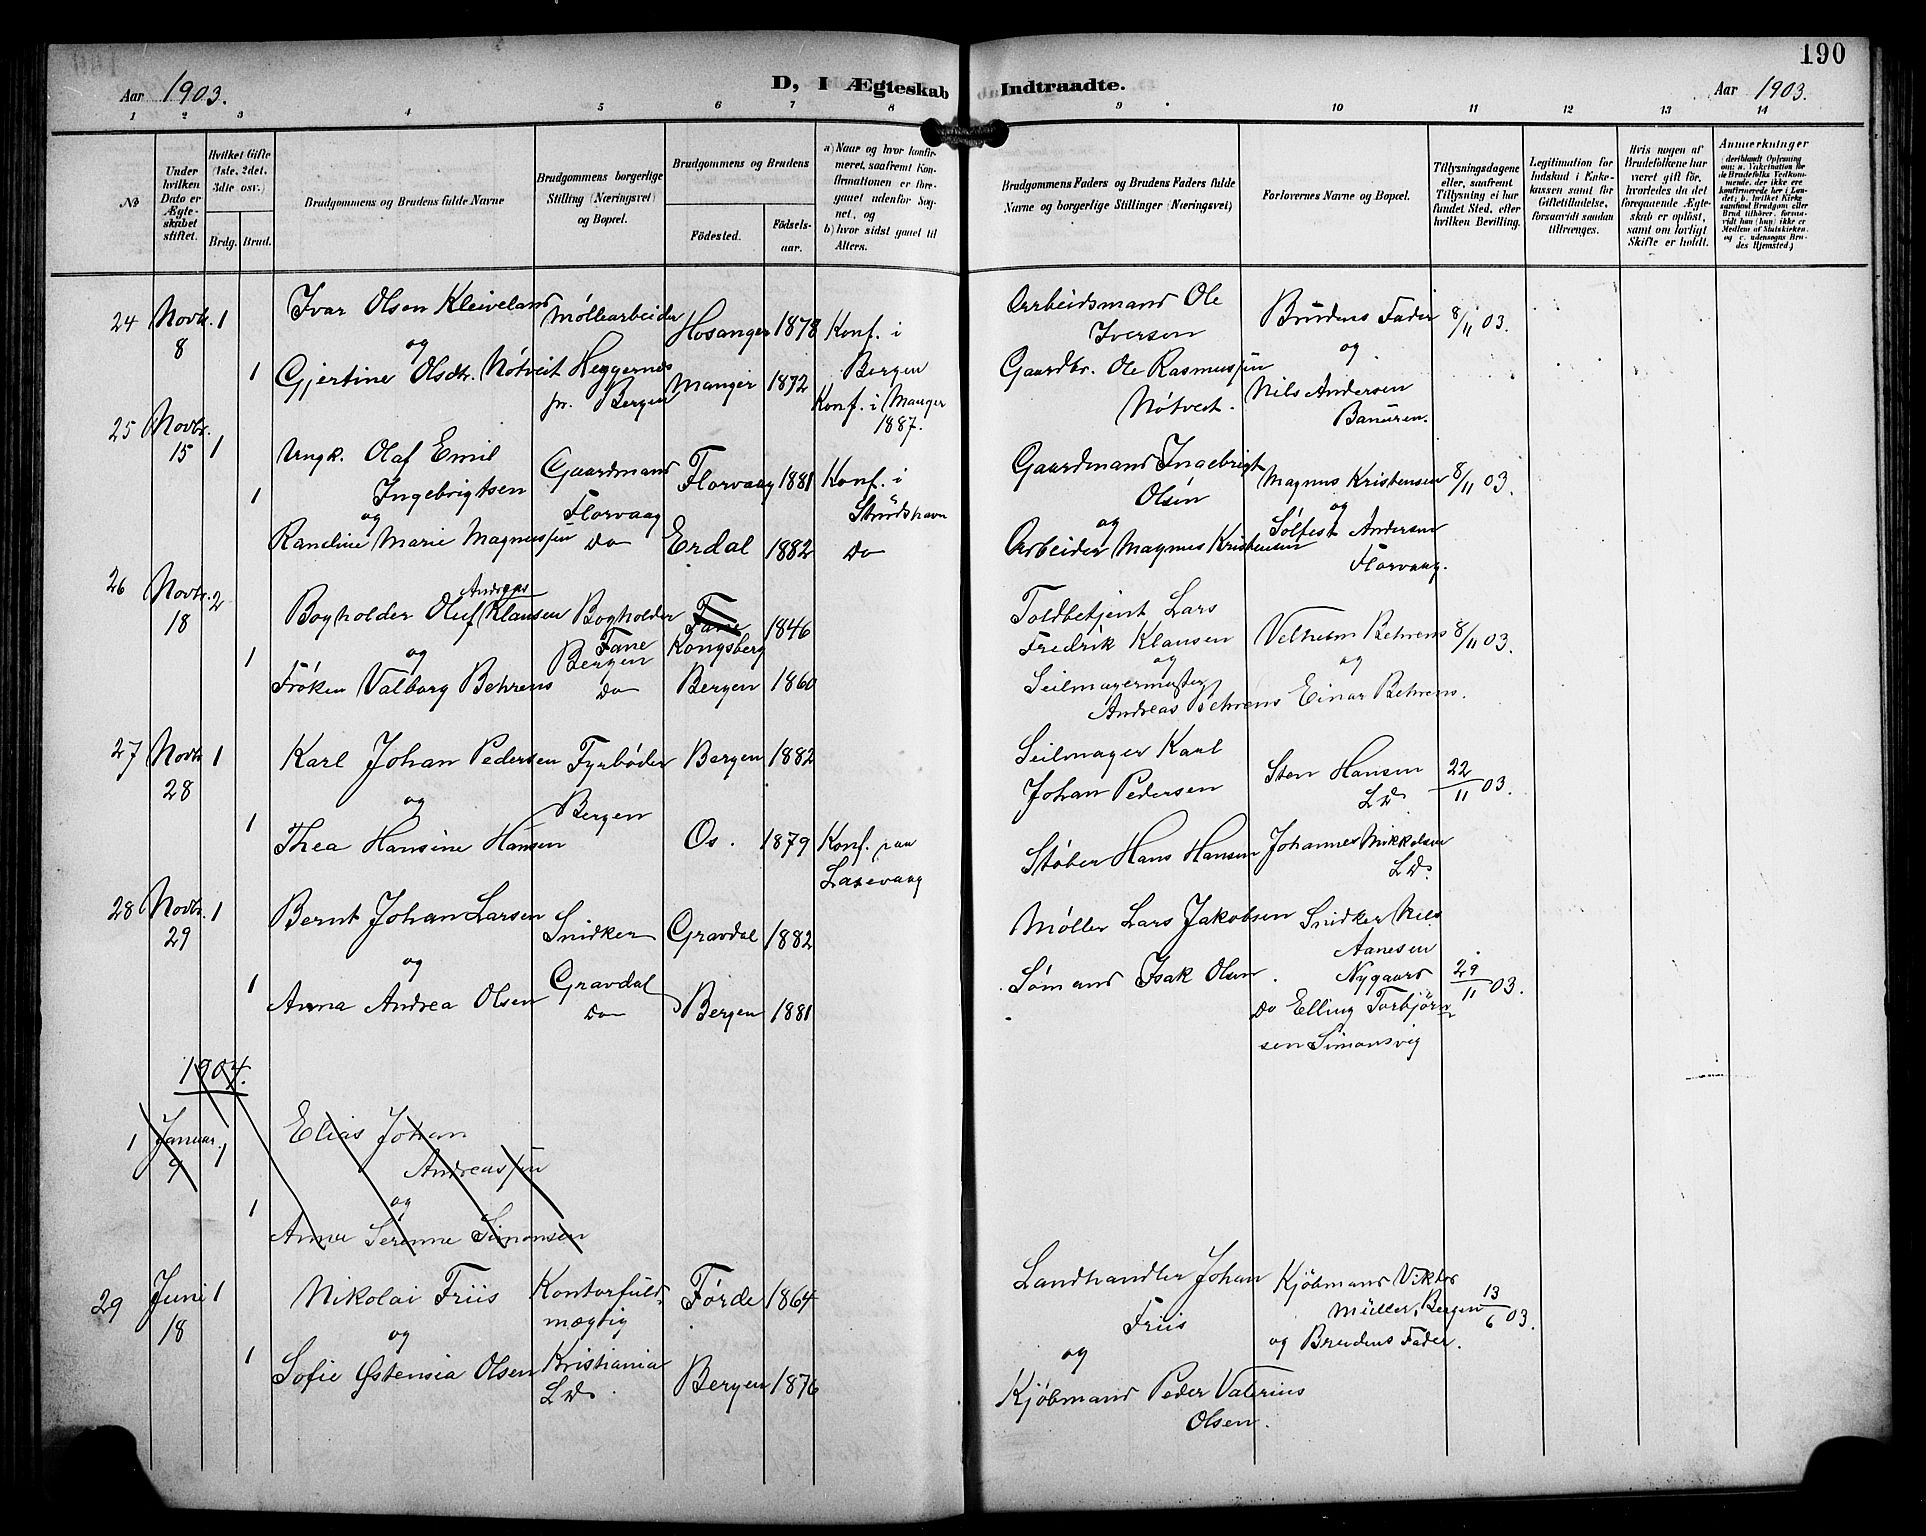 190
Aar 1903.
D, I Ægteskab Indtraadte.
Aar 1903.
1 2 3 4 5 6 7 8 9 10 11 12 13 14
No
Under hvilken Dato er Ægteskabet stiftet.
Hvilket Gifte (1ste, 2det, 3die osv.)
Brdg. Brud.
Brudgommens og Brudens fulde Navne
Brudgommens borgerlige Stilling (Næringsvei) og Bopæl.
Brudgommens og Brudens
Fødested.
Fødselsaar.
a) Naar og hvor konfirmeret, saafremt Konfirmationen er foregaaet udenfor Sognet, og
b) hvor sidst gaaet til Alters.
Brudgommens Faders og Brudens Faders fulde Navne og borgerlige Stillinger (Næringsvei)
Forlovernes Navne og Bopæl.
Tillysningsdagene eller, saafremt Tillysning ei har fundet Sted, efter hvilken Bevilling.
Legitimation for Indskud i Enkekassen samt for Giftetilladelse, forsaavidt saadan tiltrænges.
Hvis nogen af Brudefolkene har været gift før, hvorledes da det foregaaende Ægteskab er opløst, samt om lovligt Skifte er holdt.
Anmerkninger
(deriblandt Oplysning om: a. Vakcination for de Brudefolks Vedkommende, der ikke ere konfirmerede her i Landet; b. hvilket Kirkesamfund Brudgom eller Brud tilhører, forsaavidt han (hun) ikke er Medlem af Statskirken, og c. udensogns Brudes Hjemsted.)
24 Novbr. 8 1
Ivar Olsen Kleiveland Møllearbeider Hosanger 1878 Konf. i Bergen
Arbeidsmand Ole Iversen
Brudens Fader 8/11 03.
og
1 Gjertine Olsdtr. Nötveit Heggernes pr. Bergen Manger 1872 Konf. i Manger 1887.
Gaardbr. Ole Rasmussen Nötveit.
og
Nils Andersen
25 Novbr. 15 1
Ungk. Olaf Emil Ingebrigtsen Gaardmand Florvaag Florvaag 1881 Konf. i Strudshavn
Gaardmand Ingebrigt Olsen
Magnus Kristensen 8/11 03.
og
1 Randine Marie Magnussen Do Erdal 1882 Do
og
Arbeider Magnus Kristensen
og
Solfest Andersen Florvaag.
26 Novbr. 18 2
Andreas
Bogholder Oluf Klausen Bogholder Fane Bergen Fane Kongsberg 1846
Toldbetjent Lars Fredrik Klausen
Velhelm Behrens 8/11 03.
og
1 Frøken Valborg Behrens Do Bergen 1860
og
Seilmagermester Andreas Behrens
og
Einar Behrens.
27 Novbr 28 1
Karl Johan Pedersen Fyrbøder Bergen Bergen 1882
Seilmager Karl Johan Pedersen
Sten Hansen Ld. 22/11 03.
og
1 Thea Hansine Hansen Os. 1879 Konf. paa Laxevaag
Støber Hans Hansen
Johannes Mikkelsen Ld.
28 Novbr. 29 1
Bernt Johan Larsen Snidker Gravdal Gravdal 1882
Møller Lars Jakobsen
Snidker Nils Aanesen Nygaard 29/11 03.
og
1 Anna Andrea Olsen Do Bergen 1881
Sømand Isak Olsen
Do Elling Torbjørnsen Simonsvig
1904.
1 Januar. 9 1
Elias Johan Andreassen
og
1 Anna Serenne Simonsen
29 Juni 18 1
Nikolai Friis Kontorfuldmægtig Kristiania Førde 1864
Landhandler Johan Friis
Kjøbmand Viktor Müller, Bergen 13/6 03.
og Brudens Fader.
og
1 Sofie Østensia Olsen Ld. Bergen 1876
og
Kjøbmand Peder Valerius Olsen.